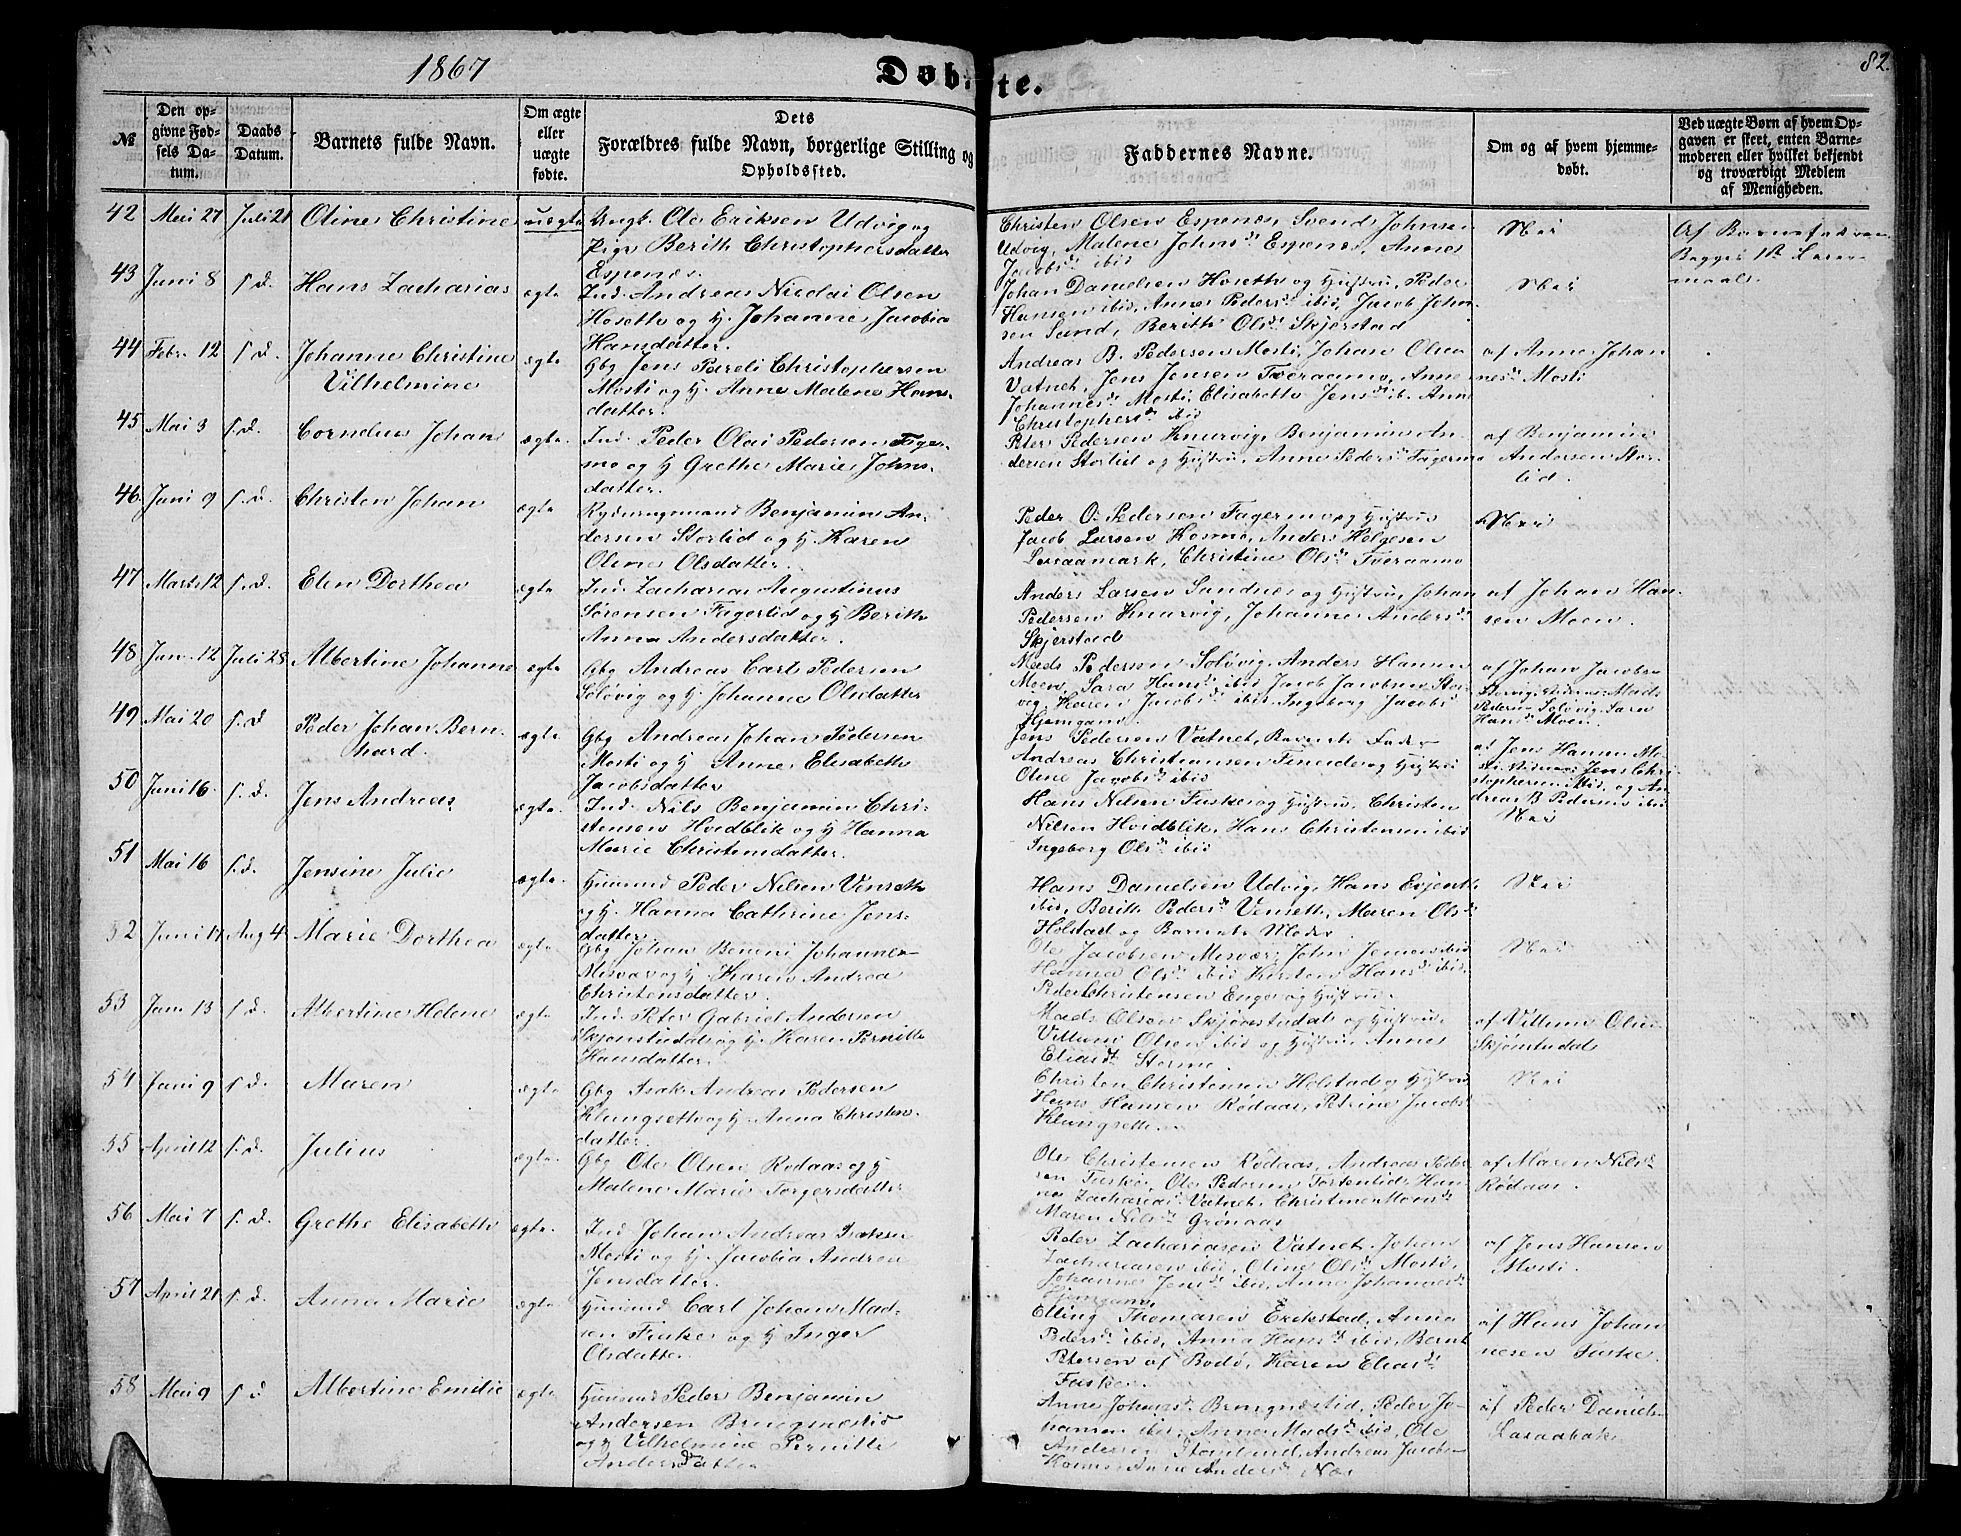 1867
Døbte.
82.
№
Den opgivne Fødsels Datum.
Daabs Datum.
Barnets fulde Navn.
Om ægte eller uægte fødte.
Dets Forældres fulde Navn, borgerlige Stilling og Opholdssted.
Faddernes Navne.
Om og af hvem hjemmedøbt.
Ved uægte Børn af hvem Opgaven er skeet, enten Barnemoderen eller hvilket bekjendt og troværdigt Medlem af Menigheden.
42 Mai 27 Juli 21 Oline Christine uægte Ungk. Ole Eriksen Udvig og
Pige Berith Christophersdatter
Espenæs.
Christen Olsen Espenæs, Svend Johnsen
Udvig, Malene Johnsd. Espenæs, Anne
Jacobsd. ibid
Nei
Af Barnefaderen
Begges 1ste Leiermaal.
43 Juni 8 s.d. Hans Zacharias ægte Ind. Andreas Nicolai Olsen
Hoseth og H. Johanne Jacobia
Hansdatter.
Johan Danielsen Hoseth og Hustru, Peder
Hansen ibid, Anne Pedersd. ibid, Jacob Johnsen
Sand, Berith Olsd. Skjerstad
Nei
44 Febr. 12 s.d. Johanne Christine
Vilhelmine
ægte Gbg Jens Pareli Christophersen
Mosti og H. Anne Malene Hansdatter.
Andreas B. Pedersen Mosti, Johan Olsen
Vatnet, Jens Jensen Tveraamo, Anne
Johannesd. Mosti, Elisabeth Jensd. ib. Anne
Christophersd. ibid
af Anne Johannesd.
Mosti
45 Mai 3 s.d. Cornelius Johan ægte Ind. Peder Olai Pedersen Fagermo
og H Grethe Marie Johnsdatter.
Peter Pedersen Knurvig, Benjamin Andersen
Storlid og Hustru, Anne Pedersd. Fagermo
af Benjamin
Andersen Storlid.
46 Juni 9 s.d. Christen Johan ægte Rydningsmand Benjamin Andersen
Storlid og H. Karen
Oline Olsdatter.
Peder O. Pedersen Fagermo og Hustru
Jacob Larsen Kosmo, Anders Helgesen
Laxaamark, Christine Olsd. Tveraamo
Nei
47 Marts 12 s.d. Elen Dorthea ægte Ind. Zacharias Augustinus
Sørensen Fagerlid og H Berith
Anna Andersdatter.
Anders Larsen Sandnæs og Hustru, Johan
Pedersen Knurvig, Johanne Andersd.
Skjerstad
af Johan Hansen
Moen.
48 Jan. 12 Juli 28 Albertine Johanne ægte Gbg Andreas Carl Pedersen
Soløvig og H. Johanna Olsdatter
Mads Pedersen Soløvig, Anders Hansen
Moen, Sara Hansd. ibid Jacob Jacobsen Storvig,
Karen Jacobsd. ibid. Ingeborg Jacobsd.
Hjemgam.
af Johan Jacobsen
Pedersen Soløvig, Sara
Hansd. Moen.
49 Mai 20 s.d Peder Johan Bernhard.
ægte Gbg Andreas Johan Pedersen
Mosti og H Anne Elisabeth
Jacobsdatter
Jens Pedersen Vatnet, Barnets Fader
Andreas Christiansen Fineide og Hustru
Oline Jacobsd. ibid
af Jens Hansen Mosti
Vidner: Jens Christophersen
ibid, og Andreas
B Pedersen ibid
50 Juni 16 s.d. Jens Andreas ægte Ind. Nils Benjamin Christensen
Hvidblik og H Hanna
Marie Christensdatter.
Hans Nilsen Fuske og Hustru, Christen
Nilsen Hvidblik, Hans Christensen ibid
Ingeborg Olsd. ibid
Nei
51 Mai 16 s.d. Jensine Julie ægte Huusmd Peder Nilsen Venseth
og H. Hanna Cathrine Jensdatter
Hans Danielsen Udvig, Hans Evjenth
ibid, Berith Pedersd. Venseth, Maren Olsd.
Holstad og Barnets Moder.
Nei
52 Juni 17 Aug 4 Marie Dorthea ægte Gbg Johan Benoni Johannes
Misvær og H Karen Andrea
Christensdatter.
Ole Jacobsen Misvær, John Jensen ibid
Hanna Olsd. ibid Kirsten Hansd. ibid,
Peder Christensen Enge og Hustru.
Nei
53 Jan. 13 s.d. Albertine Helene ægte Ind. Peter Gabriel Andersen
Skjønstudal og H. Karen Pernille
Hansdatter.
Mads Olsen Skjønstudal og Hustru
Villum Olsen ibid og Hustru Anne
Eliasd. Storme.
af Villum Olsen
Skjønstudal
54 Juni 9 s.d. Maren ægte Gbg Isak Andreas Pedersen
Klungseth og H. Anna Christensdatter.
Christen Christensen Holstad og Hustru
Hans Hansen Rødaas, Petrine Jacobsd.
Klungseth.
Nei
55 April 12 s.d. Julius ægte Gbg Ole Olsen Rødaas og H
Malene Marie Torgersdatter
Ole Christensen Rødaas, Andreas Pedersen
Fuske, Ole Pedersen Tortenlid, Hanna
Zachariasd. Vatnet, Christine Monsd.
Maren Nilsd. Grønaas
af Maren Nilsd.
Rødaas.
56 Mai 7 s.d. Grethe Elisabeth ægte Ind Johan Andreas Isaksen
Mosti og H. Jacobia Andrea
Jensdatter.
Peder Zachariasen Vatnet, Johan
Zachariasen ibid, Oline Olsd. Mosti,
Johanne Jensd. ibid, Anne Johannesd.
Hjemgam.
af Jens Hansen
Mosti.
57 April 21 s.d. Anna Marie ægte Huusmd Carl Johan Madsen
Fuske og H Inger
Olsdatter.
Elling Thomasen Erikstad, Anna
Pedersd. ibid, Anna Hansd. ibid, Bernt
Petersen af Bodø, Karen Eliasd.
Fuske.
af Hans Johannesen
Fuske.
58 Mai 9 s.d Albertine Emilie ægte Huusmd Peder Benjamin
Andersen Bringsnæslid
og H Vilhelmine Pernille
Andersdatter
Anne Johansd. Bringsnæslid, Peder Johansen
ibid, Anne Madsd. ibid, Ole
Andersen Støvset, Andreas Jacobsen
Kosmo, Anne Andersd. Næs
af Peder Daniels.
Laxaabak